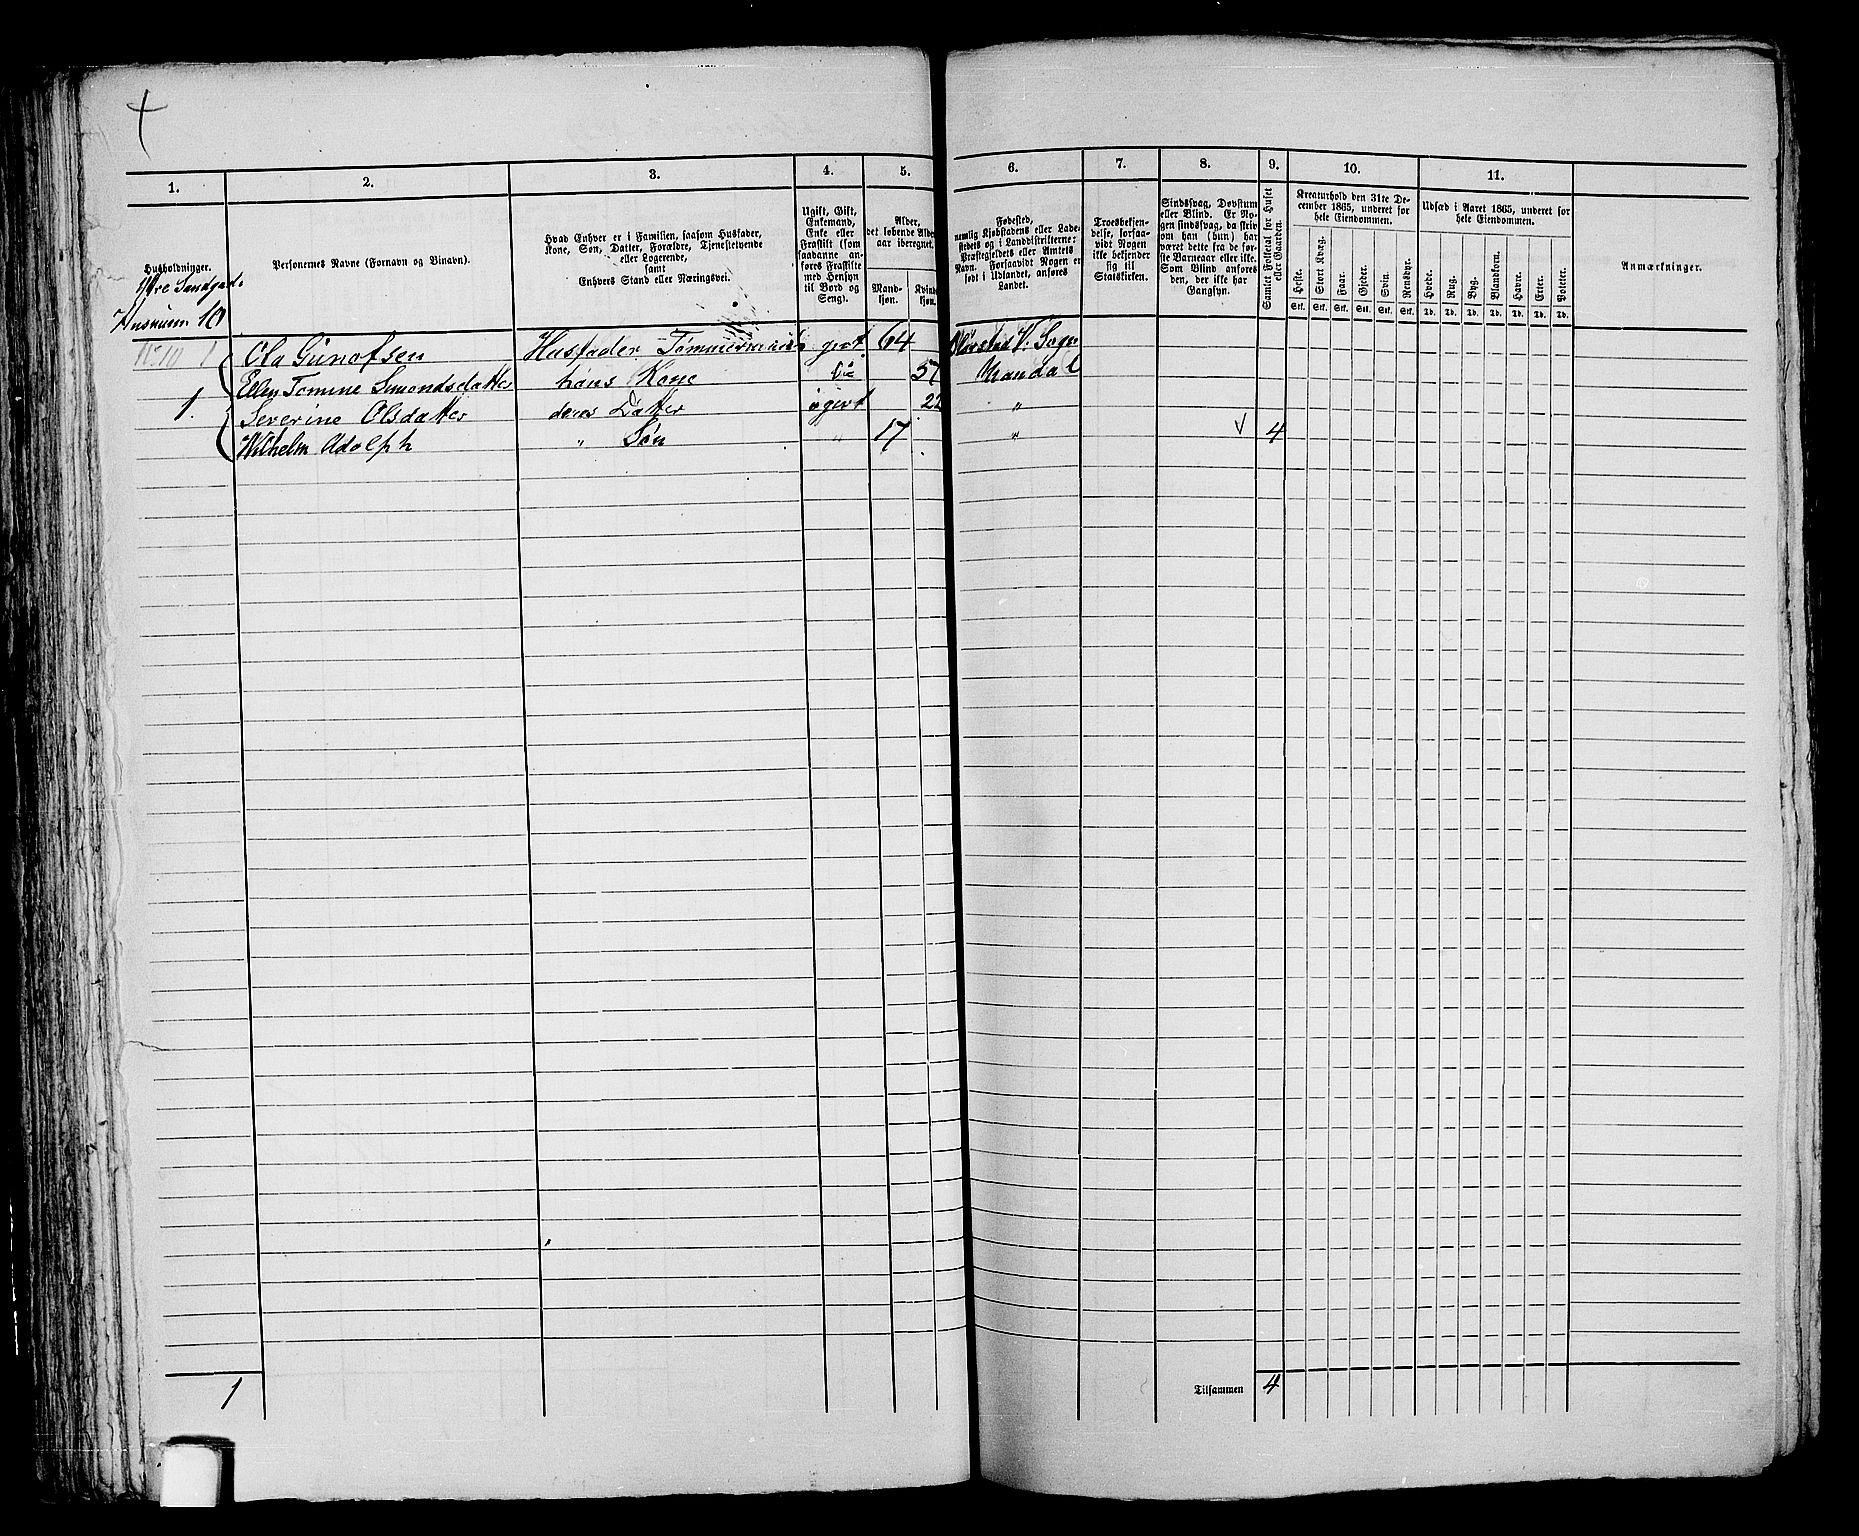 1.
2.
3.
4.
5.
6.
7.
8.
9.
10.
11.
Husholdninger.
Personernes Navne (Fornavn og Binavn).
Hvad Enhver er i Familien, saasom Husfader,
Kone, Søn, Datter, Forældre, Tjenestetyende
eller Logerende,
samt
Enhvers Stand eller Næringsvei.
Ugift, Gift,
Enkemand,
Enke eller
Fraskilt (som
saadanne an-
føres Fraskilte
med Hensyn
til Bord og
Seng).
Alder,
det løbende Alders-
aar iberegnet.
Mand-
kjøn.
Kvinde-
kjøn.
Fødested,
nemlig Kjøbstadens eller Lade-
stedets og i Landdistrikterne:
Præstegjeldets eller Amtets
Navn. Forsaavidt Nogen er
født i Udlandet, anføres
Landet.
Troesbekjen-
delse, forsaa-
vidt Nogen
ikke bekjender
sig til
Statskirken.
Sindssvag, Døvstum
eller Blind. Er No-
gen sindssvag, da skriv
om han (hun) har
været dette fra de før-
ste Barneaar eller ikke.
Som Blind anføres
den, der ikke har
Gangsyn.
Samlet Folketal for Huset
eller Gaarden.
Kreaturhold den 31te De-
cember 1865, underet for
hele Eiendommen.
Heste. Stort Kvæg. Faar. Gjeder. Svin. Rensdyr.
Stk. Stk. Stk. Stk. Stk. Stk.
Udsæd i Aaret 1865, underet for
hele Eiendommen.
Hvede. Rug. Byg. Blandkorn. Havre. Erter. Poteter.
Td. Td. Td. Td. Td. Td. Td.
Anmærkninger.
10
1 Ola Gunolfsen Husfader Tømmermand givt 64 V. Sogn
Ellen Tomine Simondsdatter hans Kone Do 57 Mandal
1. Severine Olsdatter deres Datter ugivt 22 "
Wilhelm Adolph " Søn " 17 " √ 4
1
Tilsammen 4